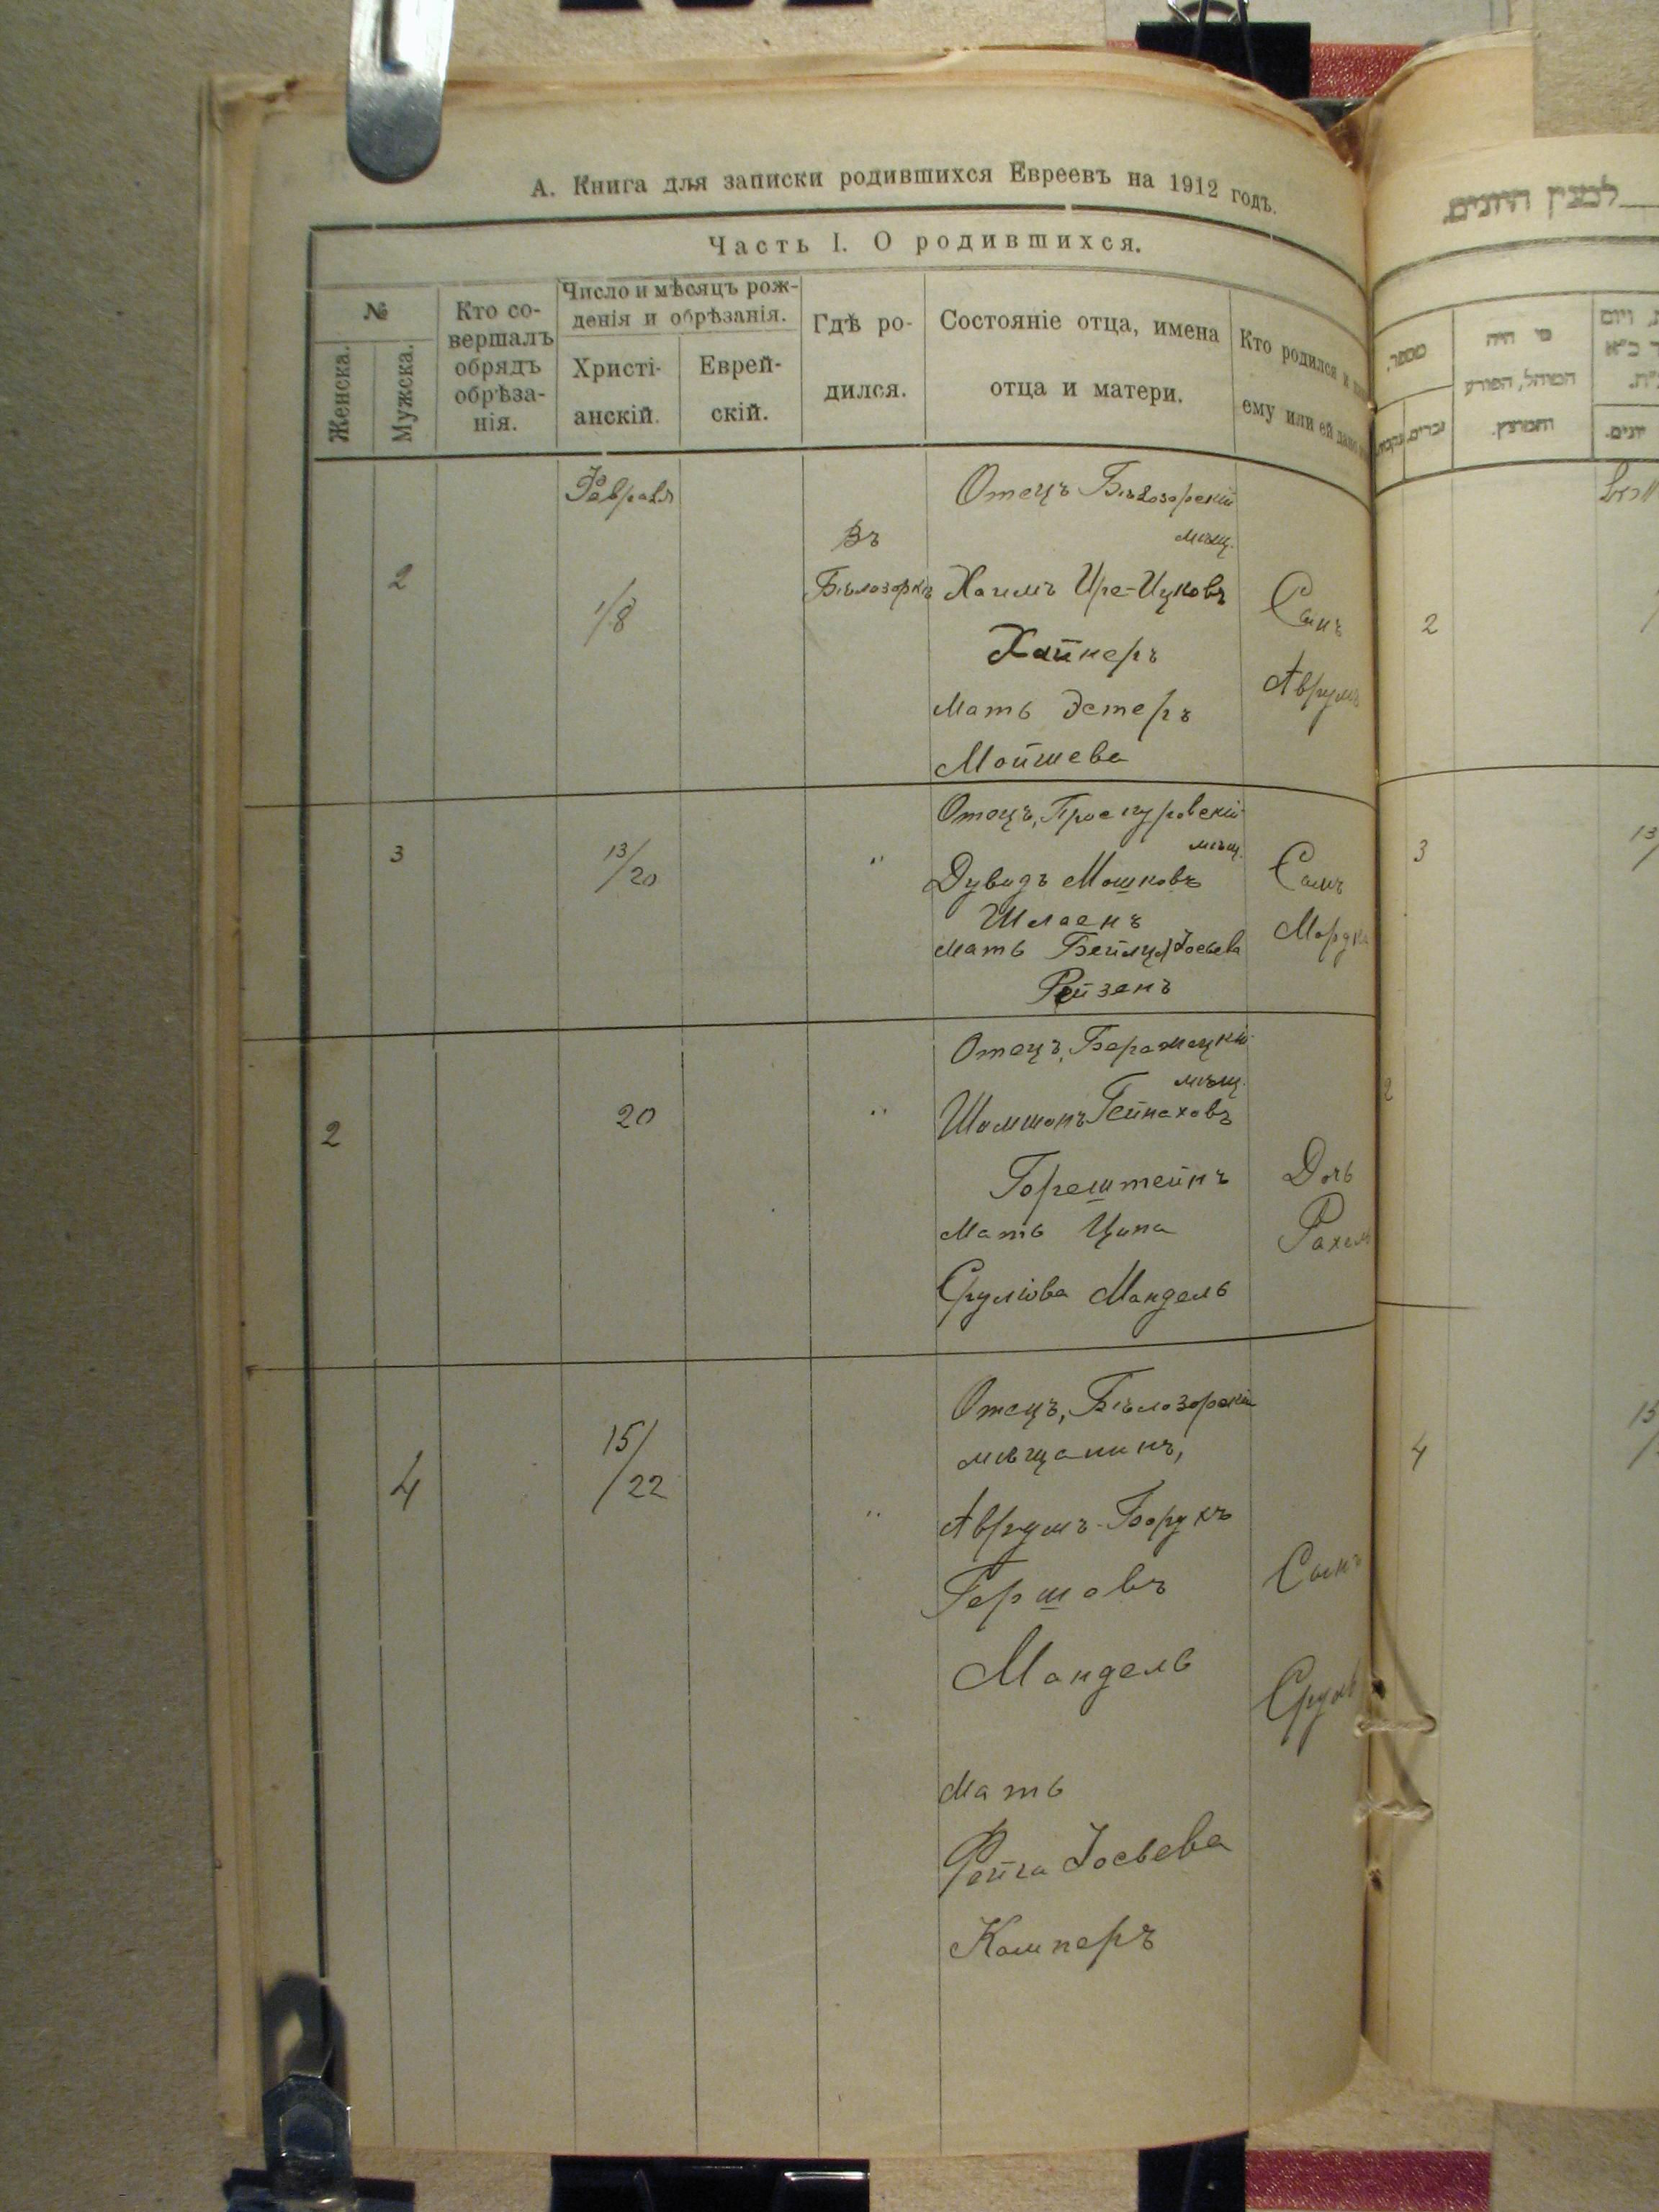 А. Книга для записки родившихся Евреевъ на 1912 годъ.
Часть I. О родившихся.
№
Женска.
Мужска.
Кто со-
вершалъ
обрядъ
обрѣза-
нія.
Число и мѣсяцъ рож-
денія и обрѣзанія.
Христі-
анскій.
Еврей-
скій.
Гдѣ ро-
дился.
Состояніе отца, имена
отца и матери.
Кто родился и
ему или ей дано
Февраля
2
1/8
Въ
Бѣлозоркѣ
Отецъ Бѣлозорскій
мѣщ.
Хаимъ Ира-Ицковъ
Хайкеръ
Мать Эстеръ
Мойшева
Сынъ
Аврумъ
3
13/20
"
Отецъ, Проскуровскій
мѣщ.
Дувидъ Мошковъ
Шлаенъ
Мать Бейла Іосьева
Рейзенъ
Сынъ
2
20
"
Отецъ,
мѣщ.
Шомшонъ Гейнаховъ
Горештейнъ
Мать Ципа
Срулiова Мандель
Дочь
4
15/22
"
Отецъ, Бѣлозорскій
мѣщанинъ,
Аврумъ-Борухъ
Гершовъ
Мандель
Мать
Фейга Іосьева
Сынъ
Сруль
מספר.
מי היה
המוהל, הפורע
והמוצץ.
2
3
2
4